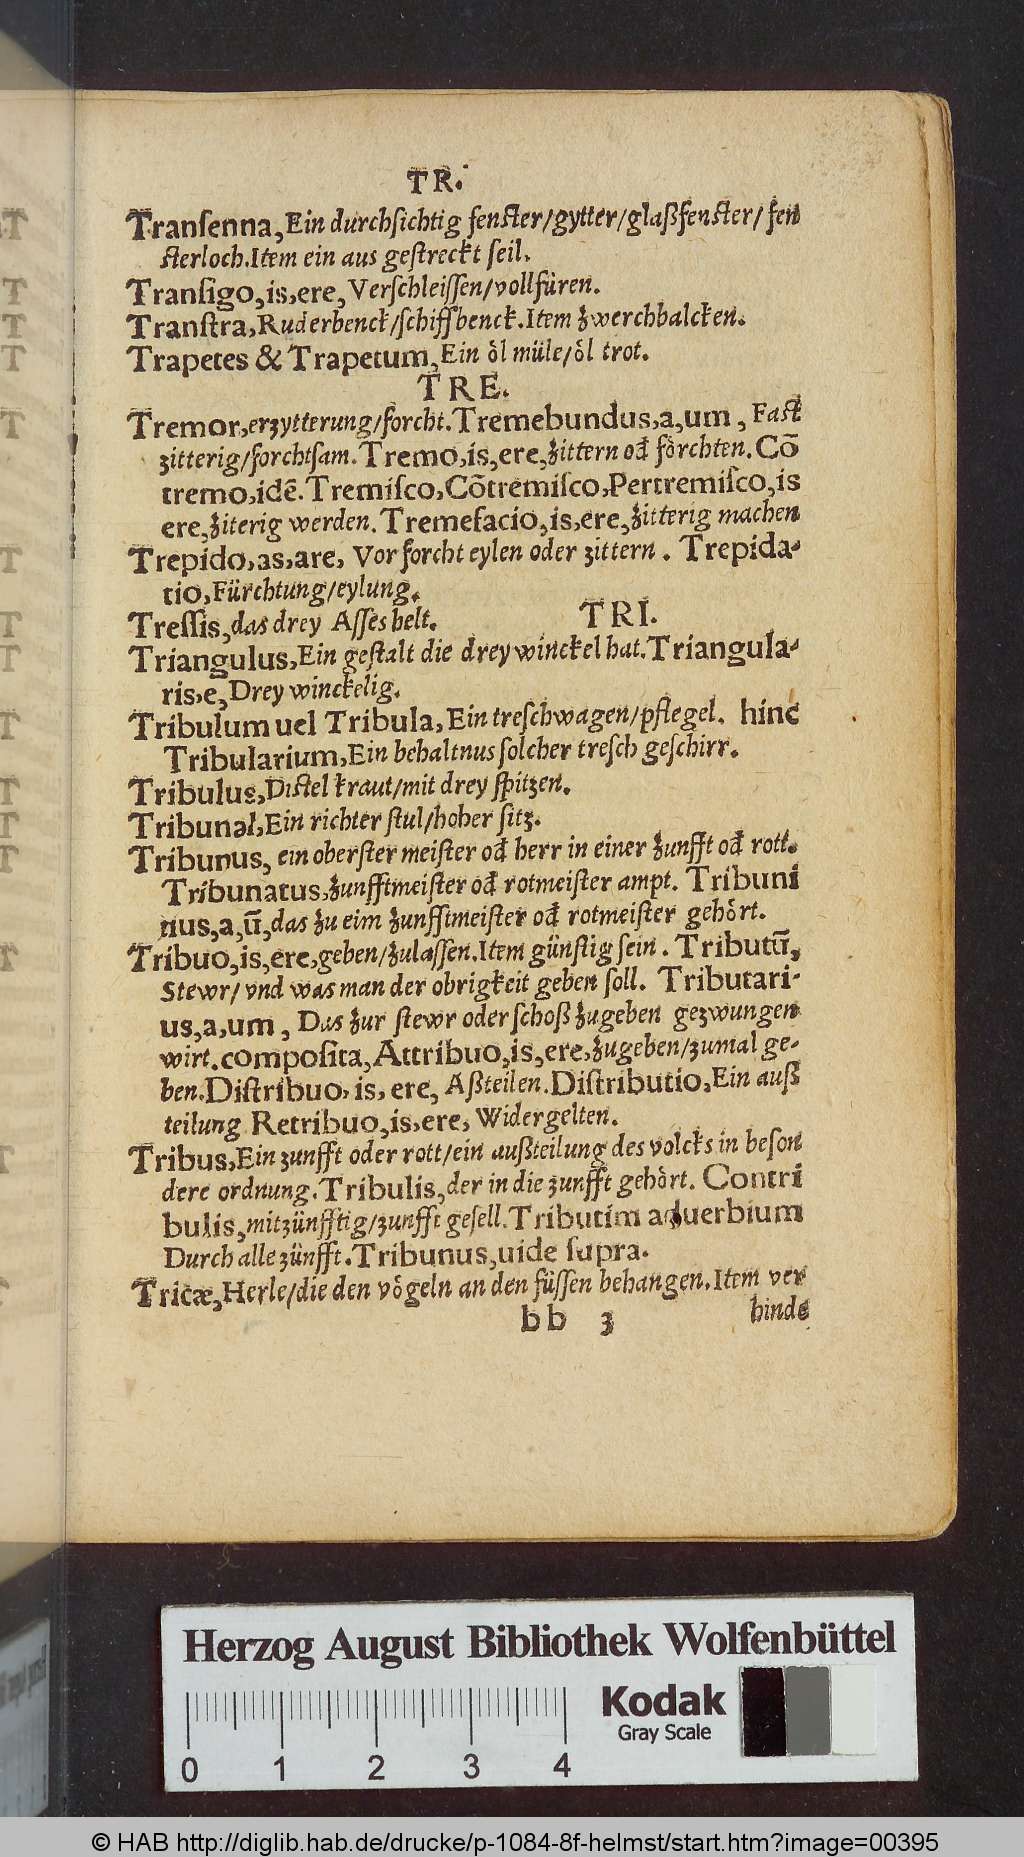 TR.
Tranſenna, Ein durchſichtig fenſter/gytter/glaßfenſter/fen
ſterloch. Item ein aus geſtreckt ſeil.
Tranſigo, is, ere, Verſchleiſſen/vollfüren.
Tranſtra, Ruderbenck/ſchiffbenck. Item zwerchbalcken.
Trapetes & Trapetum, Ein öl müle/öl trot.
TRE.
Tremor, erzytterung/forcht. Tremebundus, a, um, Faſt
zitterig/forchtſam. Tremo, is, ere, zittern oď förchten. Cõ
tremo, idẽ. Tremiſco, Cõtremiſco, Pertremiſco, is
ere, ziterig werden. Tremefacio, is, ere, zitterig machen
Trepido, as, are, Vor forcht eylen oder zittern. Trepida-
tio, Fürchtung/eylung.
Treſſis, das drey Aſſes helt. TRI.
Triangulus, Ein geſtalt die drey winckel hat. Triangula-
ris, e, Drey winckelig.
Tribulum uel Tribula, Ein treſchwagen/pflegel. hinc
Tribularium, Ein behaltnus ſolcher treſch geſchirr.
Tribulus, Diſtel kraut/mit drey ſpitzen.
Tribunal, Ein richter ſtul/hoher ſitz.
Tribunus, ein oberſter meiſter oď herr in einer zunfft oď rott.
Tribunatus, zunfftmeiſter oď rotmeiſter ampt. Tribuni
nus, a, ũ, das zu eim zunfftmeiſter oď rotmeiſter gehört.
Tribuo, is, ere, geben/zulaſſen. Item günſtig ſein. Tributũ,
Stewr/ vnd was man der obrigkeit geben ſoll. Tributari-
us, a, um, Das zur ſtewr oder ſchoß zugeben gezwungen
wirt. compoſita, Attribuo, is, ere, zugeben/zumal ge-
ben. Diſtribuo, is, ere, Aßteilen. Diſtributio, Ein auß
teilung Retribuo, is, ere, Widergelten.
Tribus, Ein zunfft oder rott/ein außteilung des volcks in beſon
dere ordnung. Tribulis, der in die zunfft gehört. Contri
bulis, mitzünfftig/zunfft geſell. Tributim aduerbium
Durch alle zünfft. Tribunus, uide ſupra.
Tricæ, Herle/die den vögeln an den füſſen behangen. Item ver
bb 3 hinde
Herzog August Bibliothek Wolfenbüttel
Kodak
Gray Scale
0 1 2 3 4
© HAB http://diglib.hab.de/drucke/p-1084-8f-helmst/start.htm?image=00395